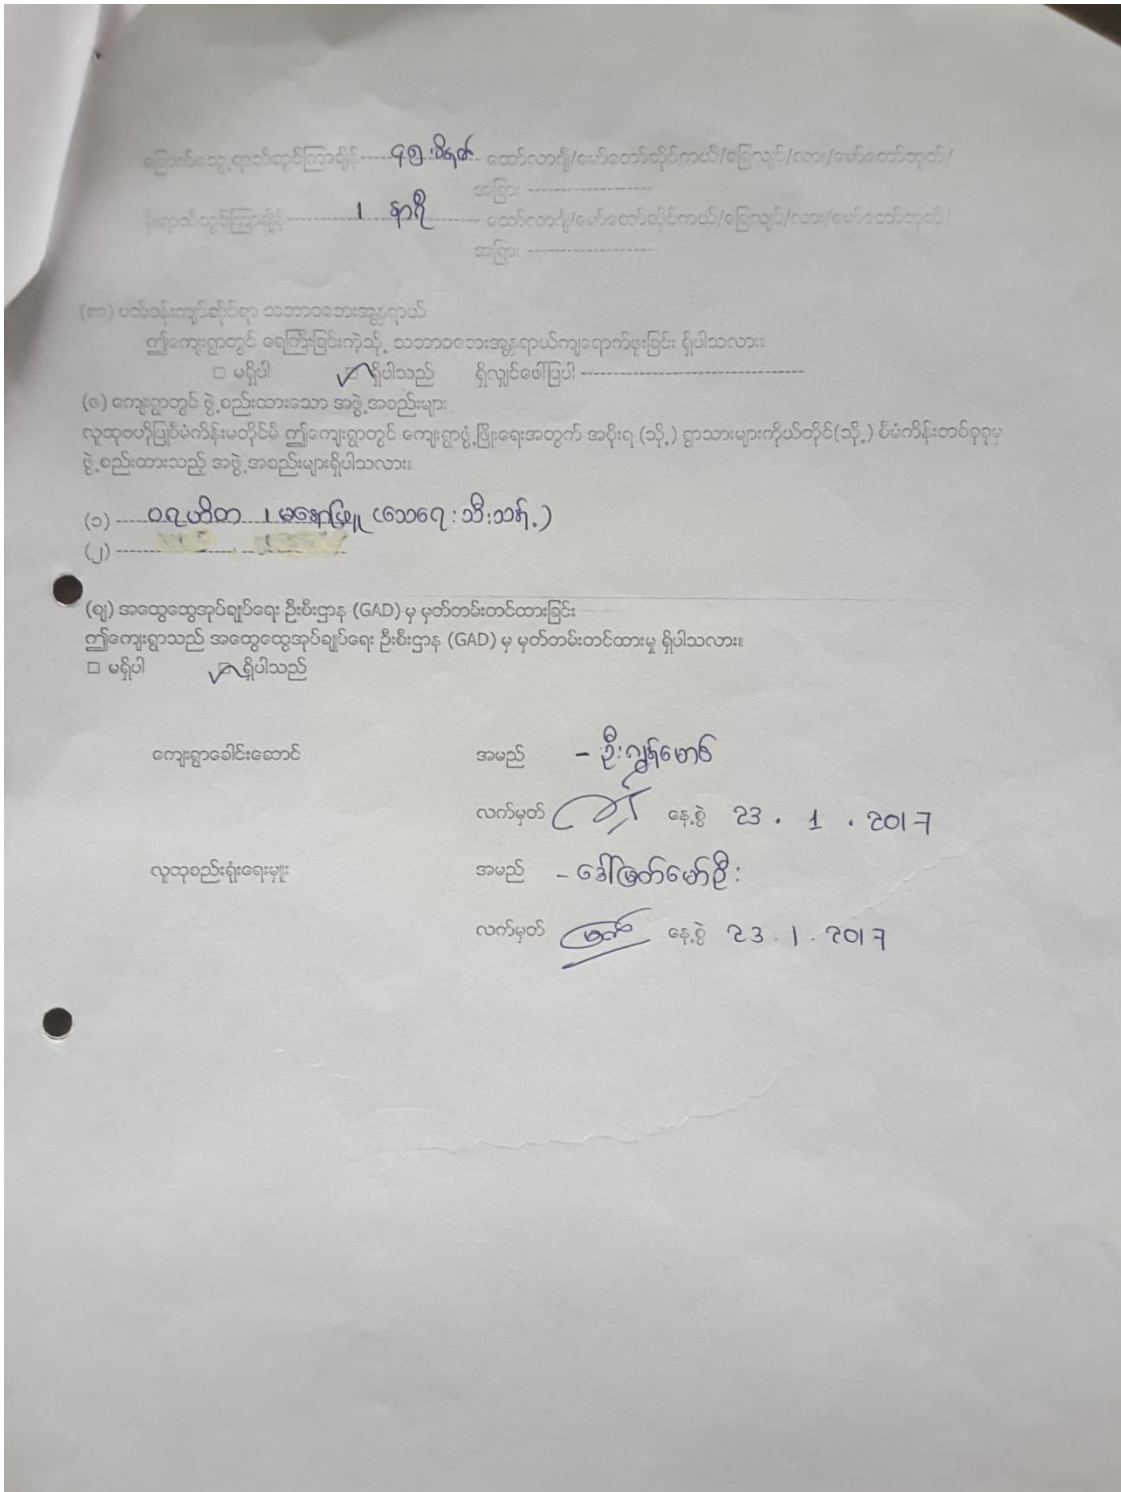 ခြောက်သွေ့ရာသီတွင်ကြာချိန်-----၄၅ မိနစ်-- ထော်လာဂျီ/မော်တော်ဆိုင်ကယ်/ခြေလျင်/လား/မော်တော်ဘုတ်/
အခြား -------------------
မိုးရာသီတွင်ကြာချိန်----------- ၁ နာရီ --------- ထော်လာဂျီ/မော်တော်ဆိုင်ကယ်/ခြေလျင်/လား/မော်တော်ဘုတ်/
အခြား -------------------
ပတ်ဝန်းကျင်ဆိုင်ရာ သဘာဝဘေးအန္တရာယ်
ဤကျေးရွာတွင် ရေကြီးခြင်းကဲ့သို့ သဘာဝဘေးအန္တရာယ်ကျရောက်ဖူးခြင်း ရှိပါသလား။
□ မရှိပါ ☑ ရှိပါသည် ရှိလျှင်ဖေါ်ပြပါ ----------------------------------
(ဇ) ကျေးရွာတွင် ဖွဲ့စည်းထားသော အဖွဲ့အစည်းများ
လူထုဗဟိုပြုစီမံကိန်းမတိုင်မီ ဤကျေးရွာတွင် ကျေးရွာဖွံ့ဖြိုးရေးအတွက် အစိုးရ (သို့) ရွာသားများကိုယ်တိုင်(သို့) စီမံကိန်းတစ်ခုခုမှ
ဖွဲ့စည်းထားသည့် အဖွဲ့အစည်းများရှိပါသလား။
(၁) ----- ပရဟိတ ၊ မနောဖြူ (သေရေး သီးသန့်)
(၂) -----------------------------------
(ဈ) အထွေထွေအုပ်ချုပ်ရေး ဦးစီးဌာန (GAD) မှ မှတ်တမ်းတင်ထားခြင်း
ဤကျေးရွာသည် အထွေထွေအုပ်ချုပ်ရေး ဦးစီးဌာန (GAD) မှ မှတ်တမ်းတင်ထားမှု ရှိပါသလား။
□ မရှိပါ ☑ ရှိပါသည်
ကျေးရွာခေါင်းဆောင် အမည် - ဦးဂျွန်မောင်
လက်မှတ် နေ့စွဲ 23 . 1 . 2017
လူထုစည်းရုံးရေးမှူး အမည် - ဒေါ်မြတ်မော်ဦး
လက်မှတ် မြတ် နေ့စွဲ 23 . 1 . 2017